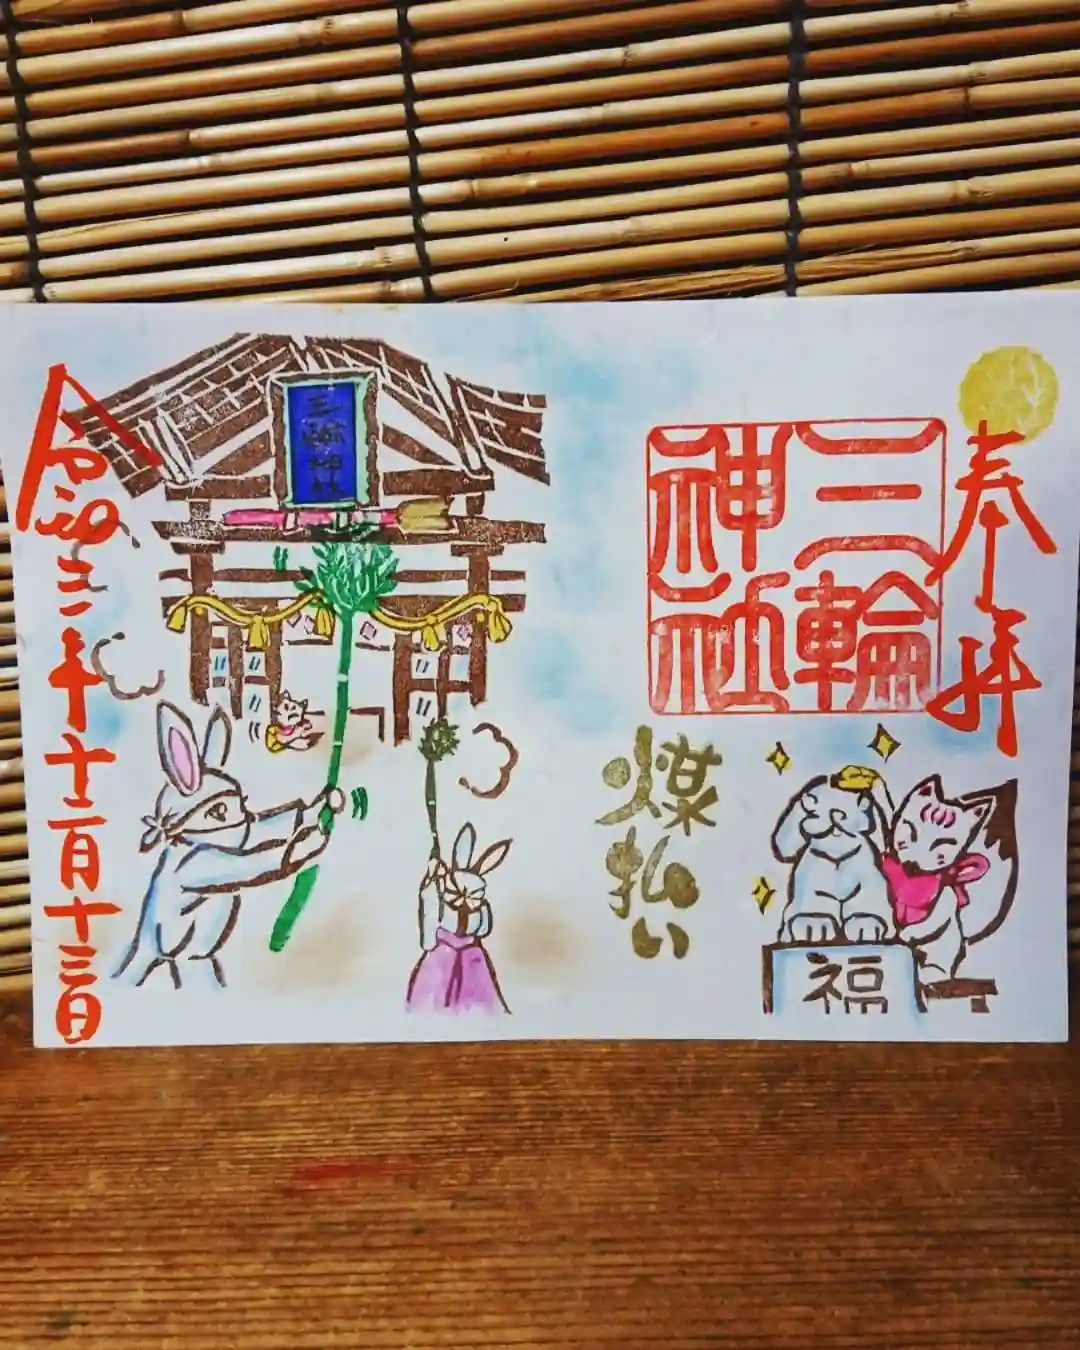 奉拝
三輪
神社
煤払い
福
三輪神社
令和三年十二月十三日